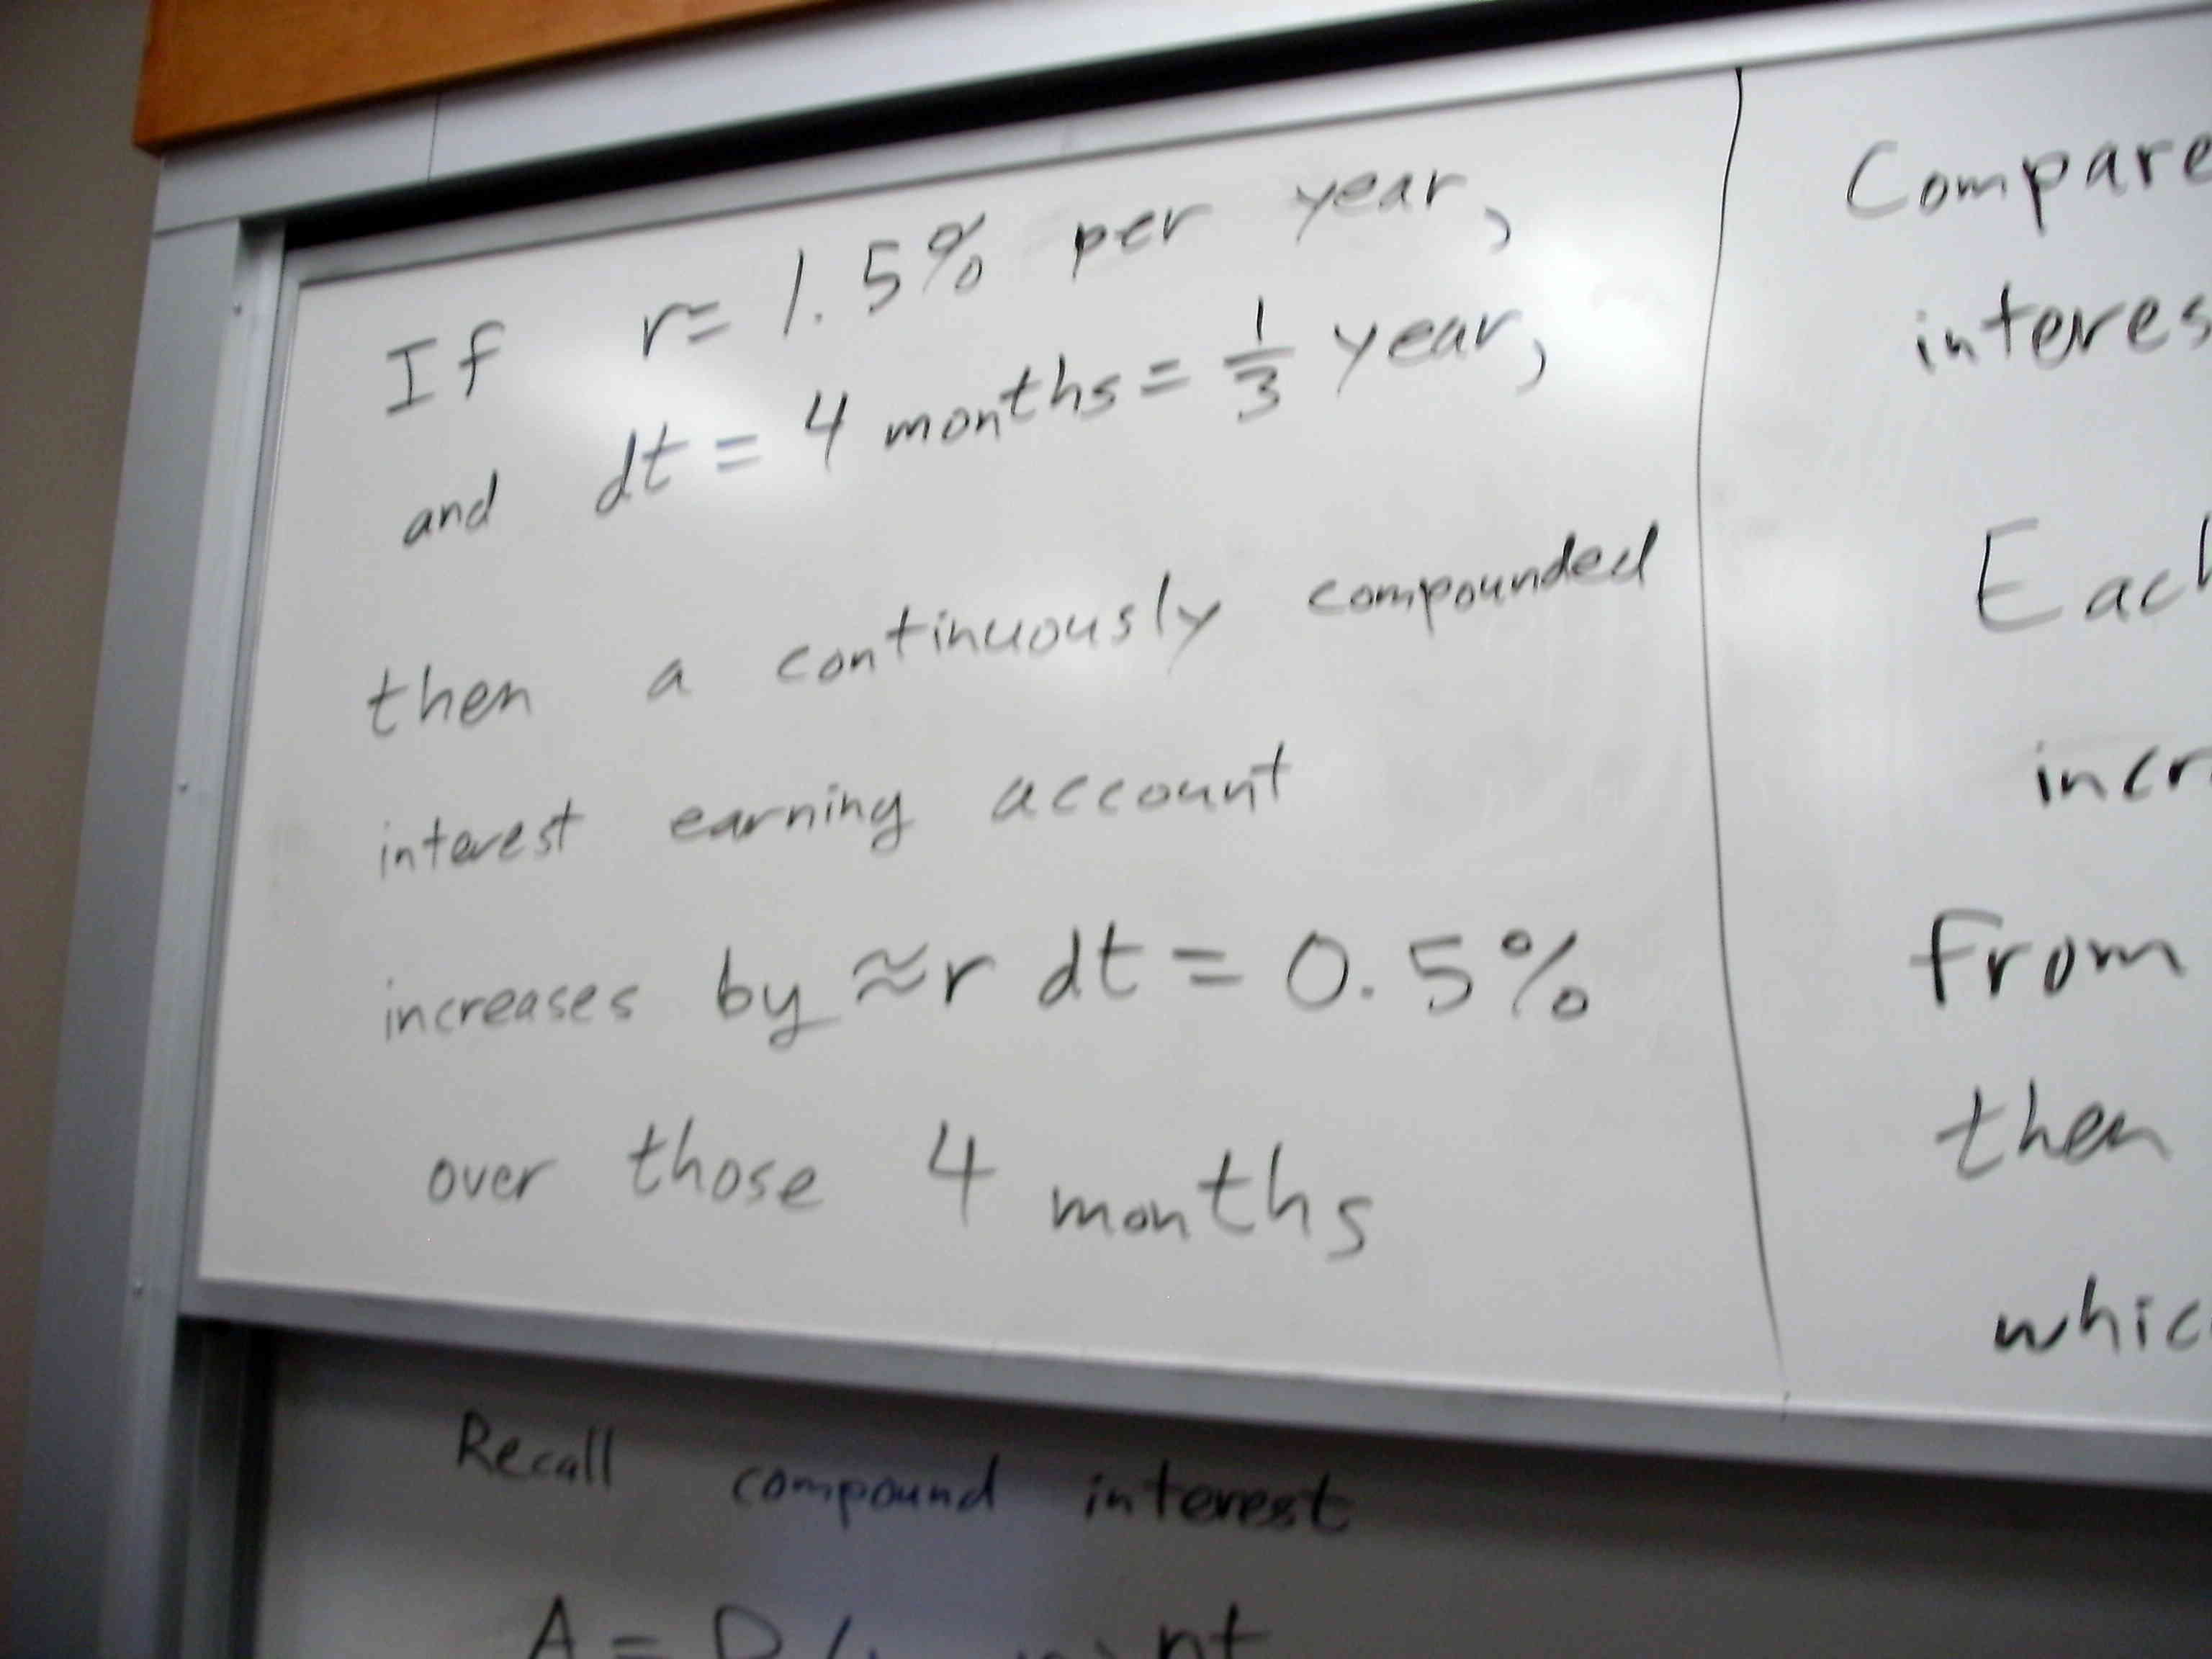 If r= 1.5% per year,
and dt = 4 months = 1/3 year,
then a continuously compounded
interest earning account
increases by ≈r dt = 0.5%
over those 4 months
Compare
interes
Each
incr
from
then
whic
Recall compound interest
A = P nt